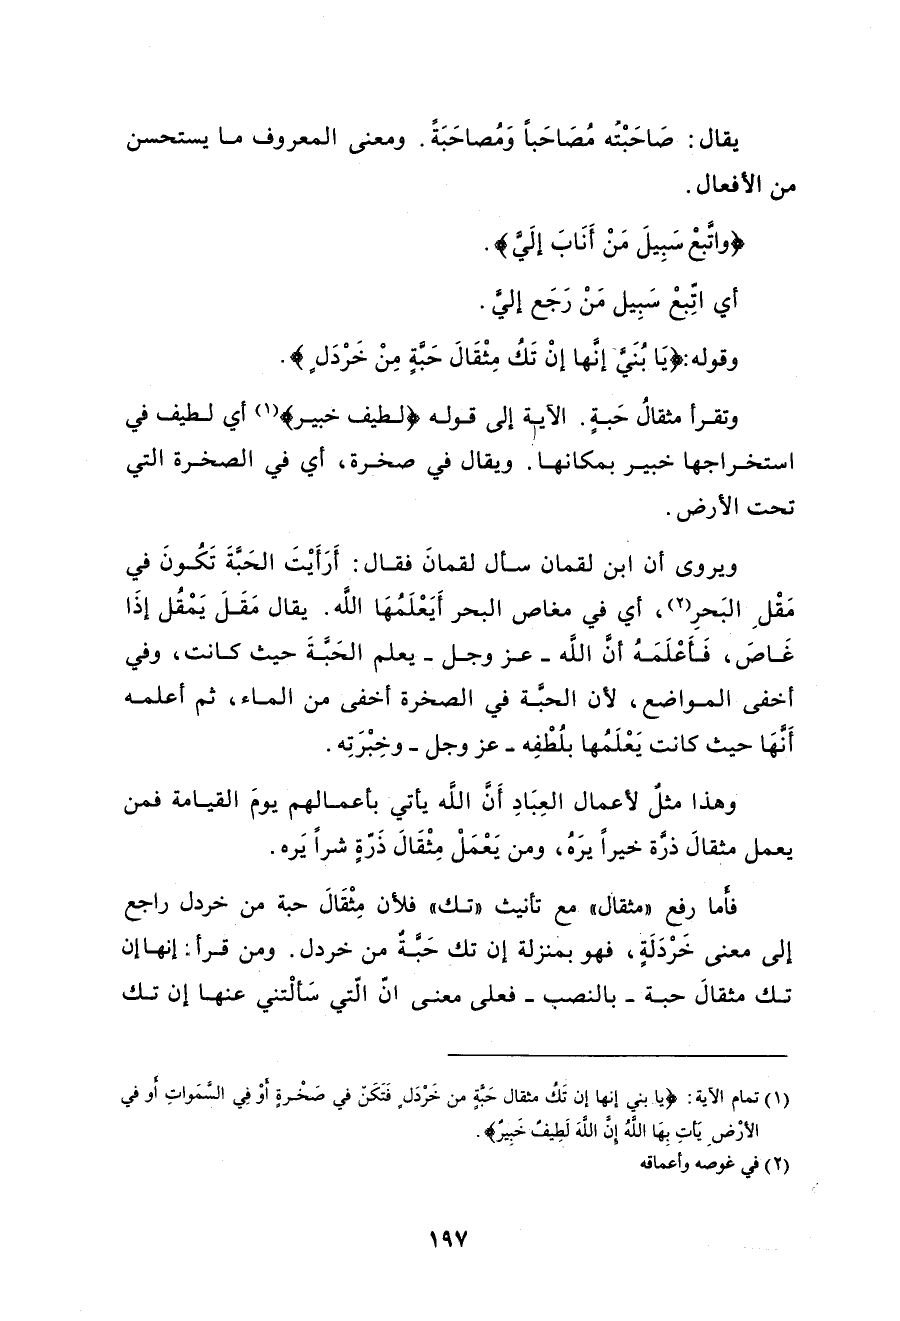 يقال: صَاحَبْتُه مُصَاحَباً وَمُصاحَبَةً. ومعنى المعروف ما يستحسن
من الأفعال.
﴿واتَّبعْ سَبِيلَ مَنْ أَنَابَ إلَيَّ﴾.
أي اتّبعْ سَبِيل مَنْ رَجَع إليَّ.
وقوله:﴿يَا بُنَيَّ إنَّها إنْ تَكُ مِثْقَالَ حَبَّةٍ مِنْ خَرْدَلٍ﴾.
وتقرأ مثقالُ حَبةٍ. الآية إلى قوله ﴿لطيف خبير﴾(١) أي لطيف في
استخراجها خبير بمكانها. ويقال في صخرة، أي في الصخرة التي
تحت الأرض.
ويروى أن ابن لقمان سأل لقمانَ فقال: أَرَأَيْتَ الحَبَّةَ تَكُونَ في
مَقْلِ البَحرِ(٢)، أي في مغاص البحر أَيَعْلَمُهَا اللَّه. يقال مَقَلَ يَمْقُل إذَا
غَاصَ، فَأَعْلَمَهُ أنَّ اللَّه ـ عز وجل ـ يعلم الحَبَّةَ حيث كانت، وفي
أخفى المواضع، لأن الحبَّة في الصخرة أخفى من الماء، ثم أعلمه
أَنَّهَا حيث كانت يَعْلَمُها بلُطْفِه ـ عز وجل ـ وخِبْرَتِه.
وهذا مثلٌ لأعمال العِبَادِ أَنَّ اللَّه يأتي بأعمالهم يومَ القيامة فمن
يعمل مثقالَ ذرَّة خيراً يرَهُ، ومن يَعْمَلْ مِثْقَالَ ذَرّةٍ شراً يَره.
فأَما رفع «مثقال» مع تأنيث «تك» فلأن مِثْقَالَ حبة من خردل راجع
إلى معنى خَرْدَلَةٍ، فهو بمنزلة إن تك حَبَّةٌ من خردل. ومن قرأ: إنها إن
تك مثقالَ حبة ـ بالنصب ـ فعلى معنى انّ الّتي سَألْتني عنها إن تك
(١) تمام الآية: ﴿يا بني إنها إن تَكُ مثقال حَبَّةٍ من خَرْدَلٍ فَتَكَنّ في صَخْرةٍ أَوْ فِي السَّمَواتِ أو في
الأرْضِ يَأتِ بِهَا اللَّهُ إنَّ اللَّهَ لَطِيفٌ خَبِيرٌ﴾.
(٢) في غوصه وأعماقه
١٩٧